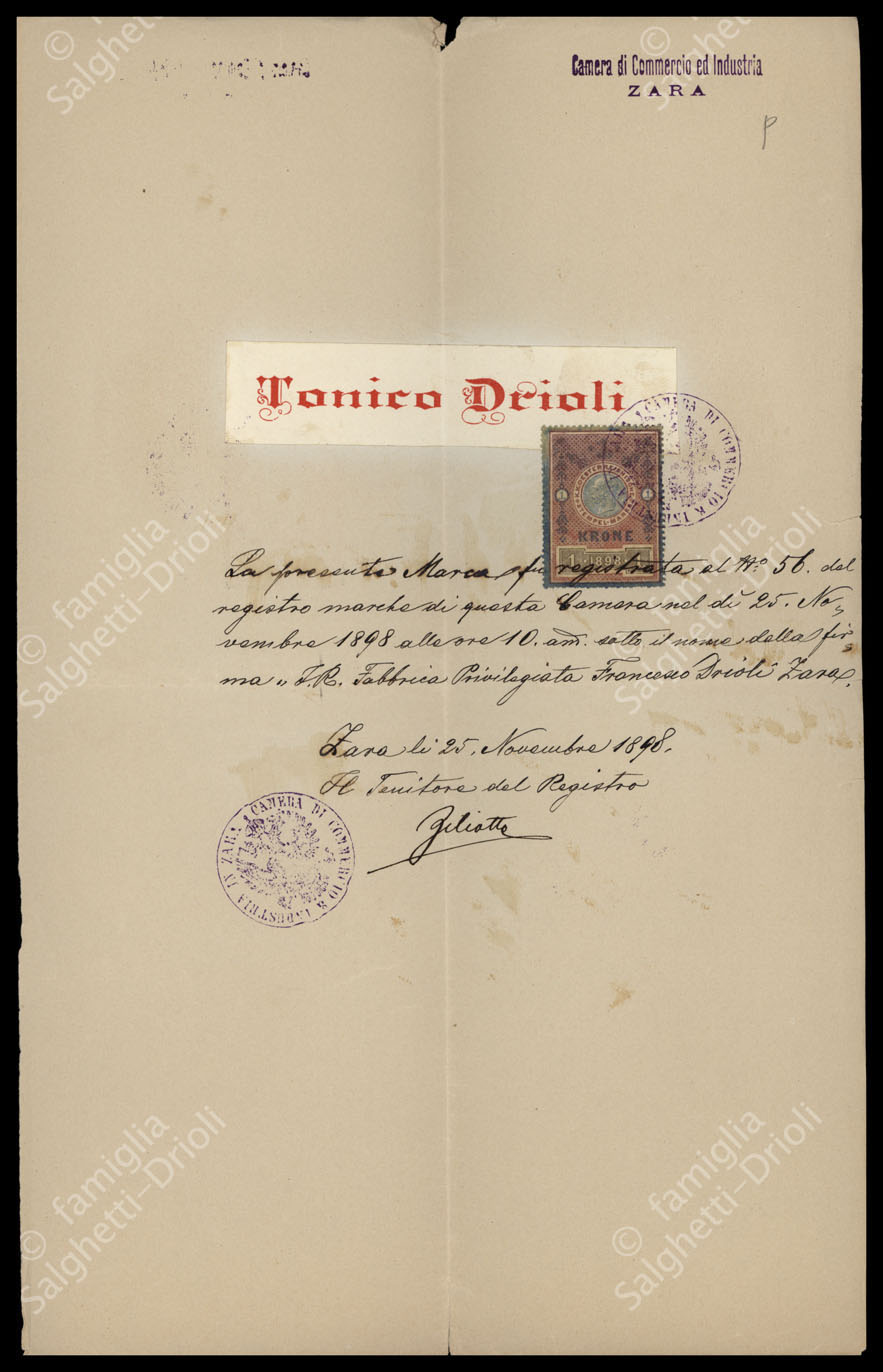 Camera di Commercio ed Industria
ZARA
P
Tonico Drioli
CAMERA DI COMMERCIO & INDUSTRIA IN ZARA
1 1
KRONE
1 1898
La presente Marca fu registrata al No. 56. del
registro marche di questa Camera nel dì 25. No„
vembre 1898 alle ore 10. am. sotto il nome della fir„
ma „ I. R. Fabbrica Privilegiata Francesco Drioli" Zara.
Zara li 25. Novembre 1898.
Il Tenitore del Registro
Ziliotto
CAMERA DI COMMERCIO & INDUSTRIA IN ZARA
© famiglia
Salghetti-Drioli
© famiglia
Salghetti-Drioli
© famiglia
Salghetti-Drioli
© famiglia
Salghetti-Drioli
©
Salghetti
©
Salghetti